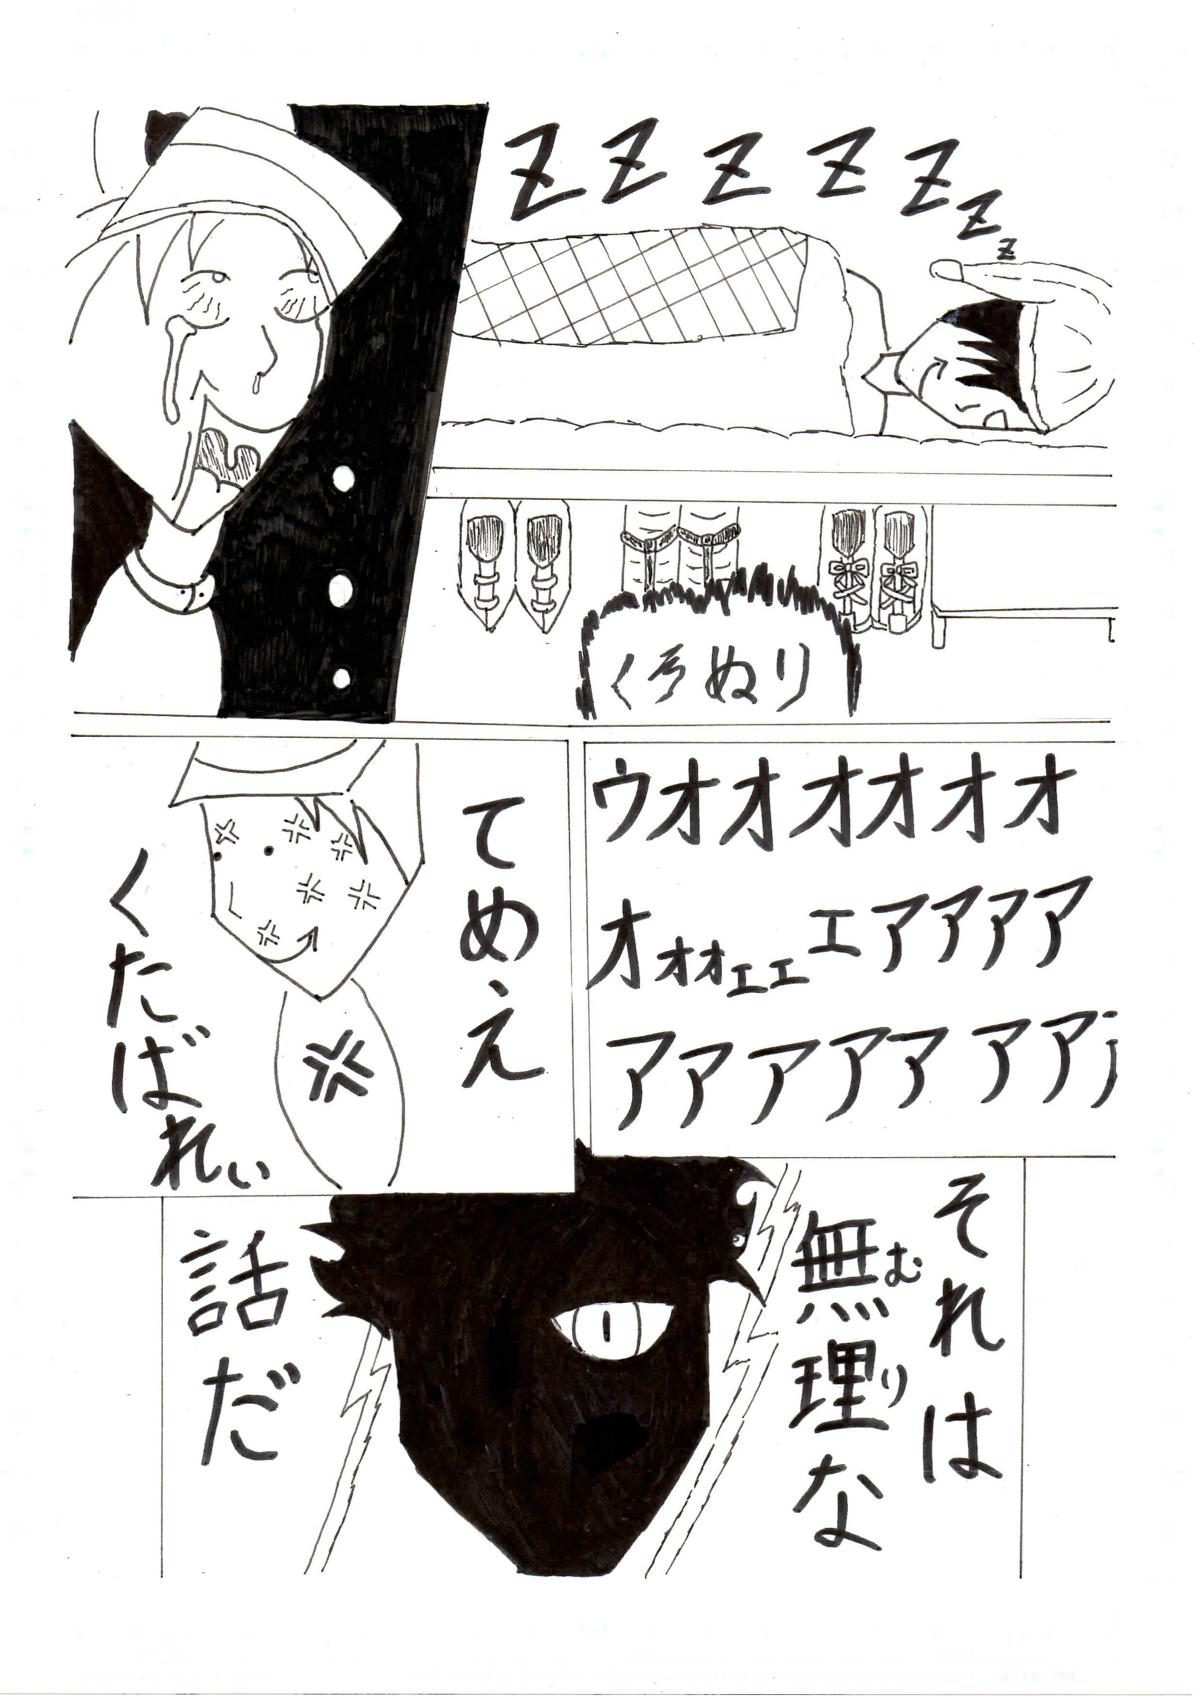 ZZZZZzz
くろぬり
ウオオオオオオ
オォォェェエアアアア
アアアアアアア
てめえ
くたばれぃ
それは
むり
無理な
話だ